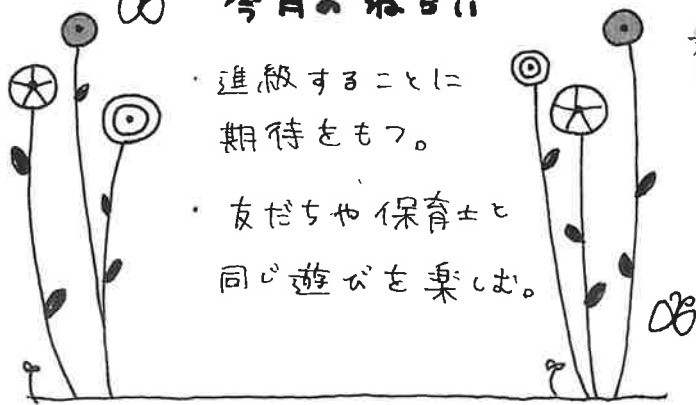 今月のねらい
・進級することに
期待をもつ。
・友だちや保育士と
同じ遊びを楽しむ。